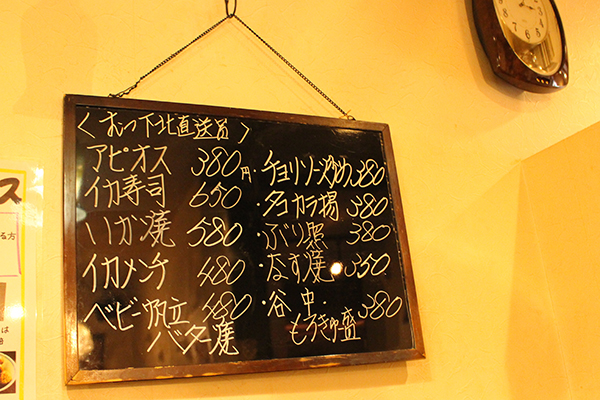 〈むつ下北直送品〉
アピオス 380円
イカ寿司 650
いか焼 580
イカメンチ 480
ベビー帆立 480
バター焼
・チョリソー炒め 380
・タコカラ揚 380
・ぶり照 380
・なす焼 350
・谷中 380
もろきゅ盛
ス
る方
は